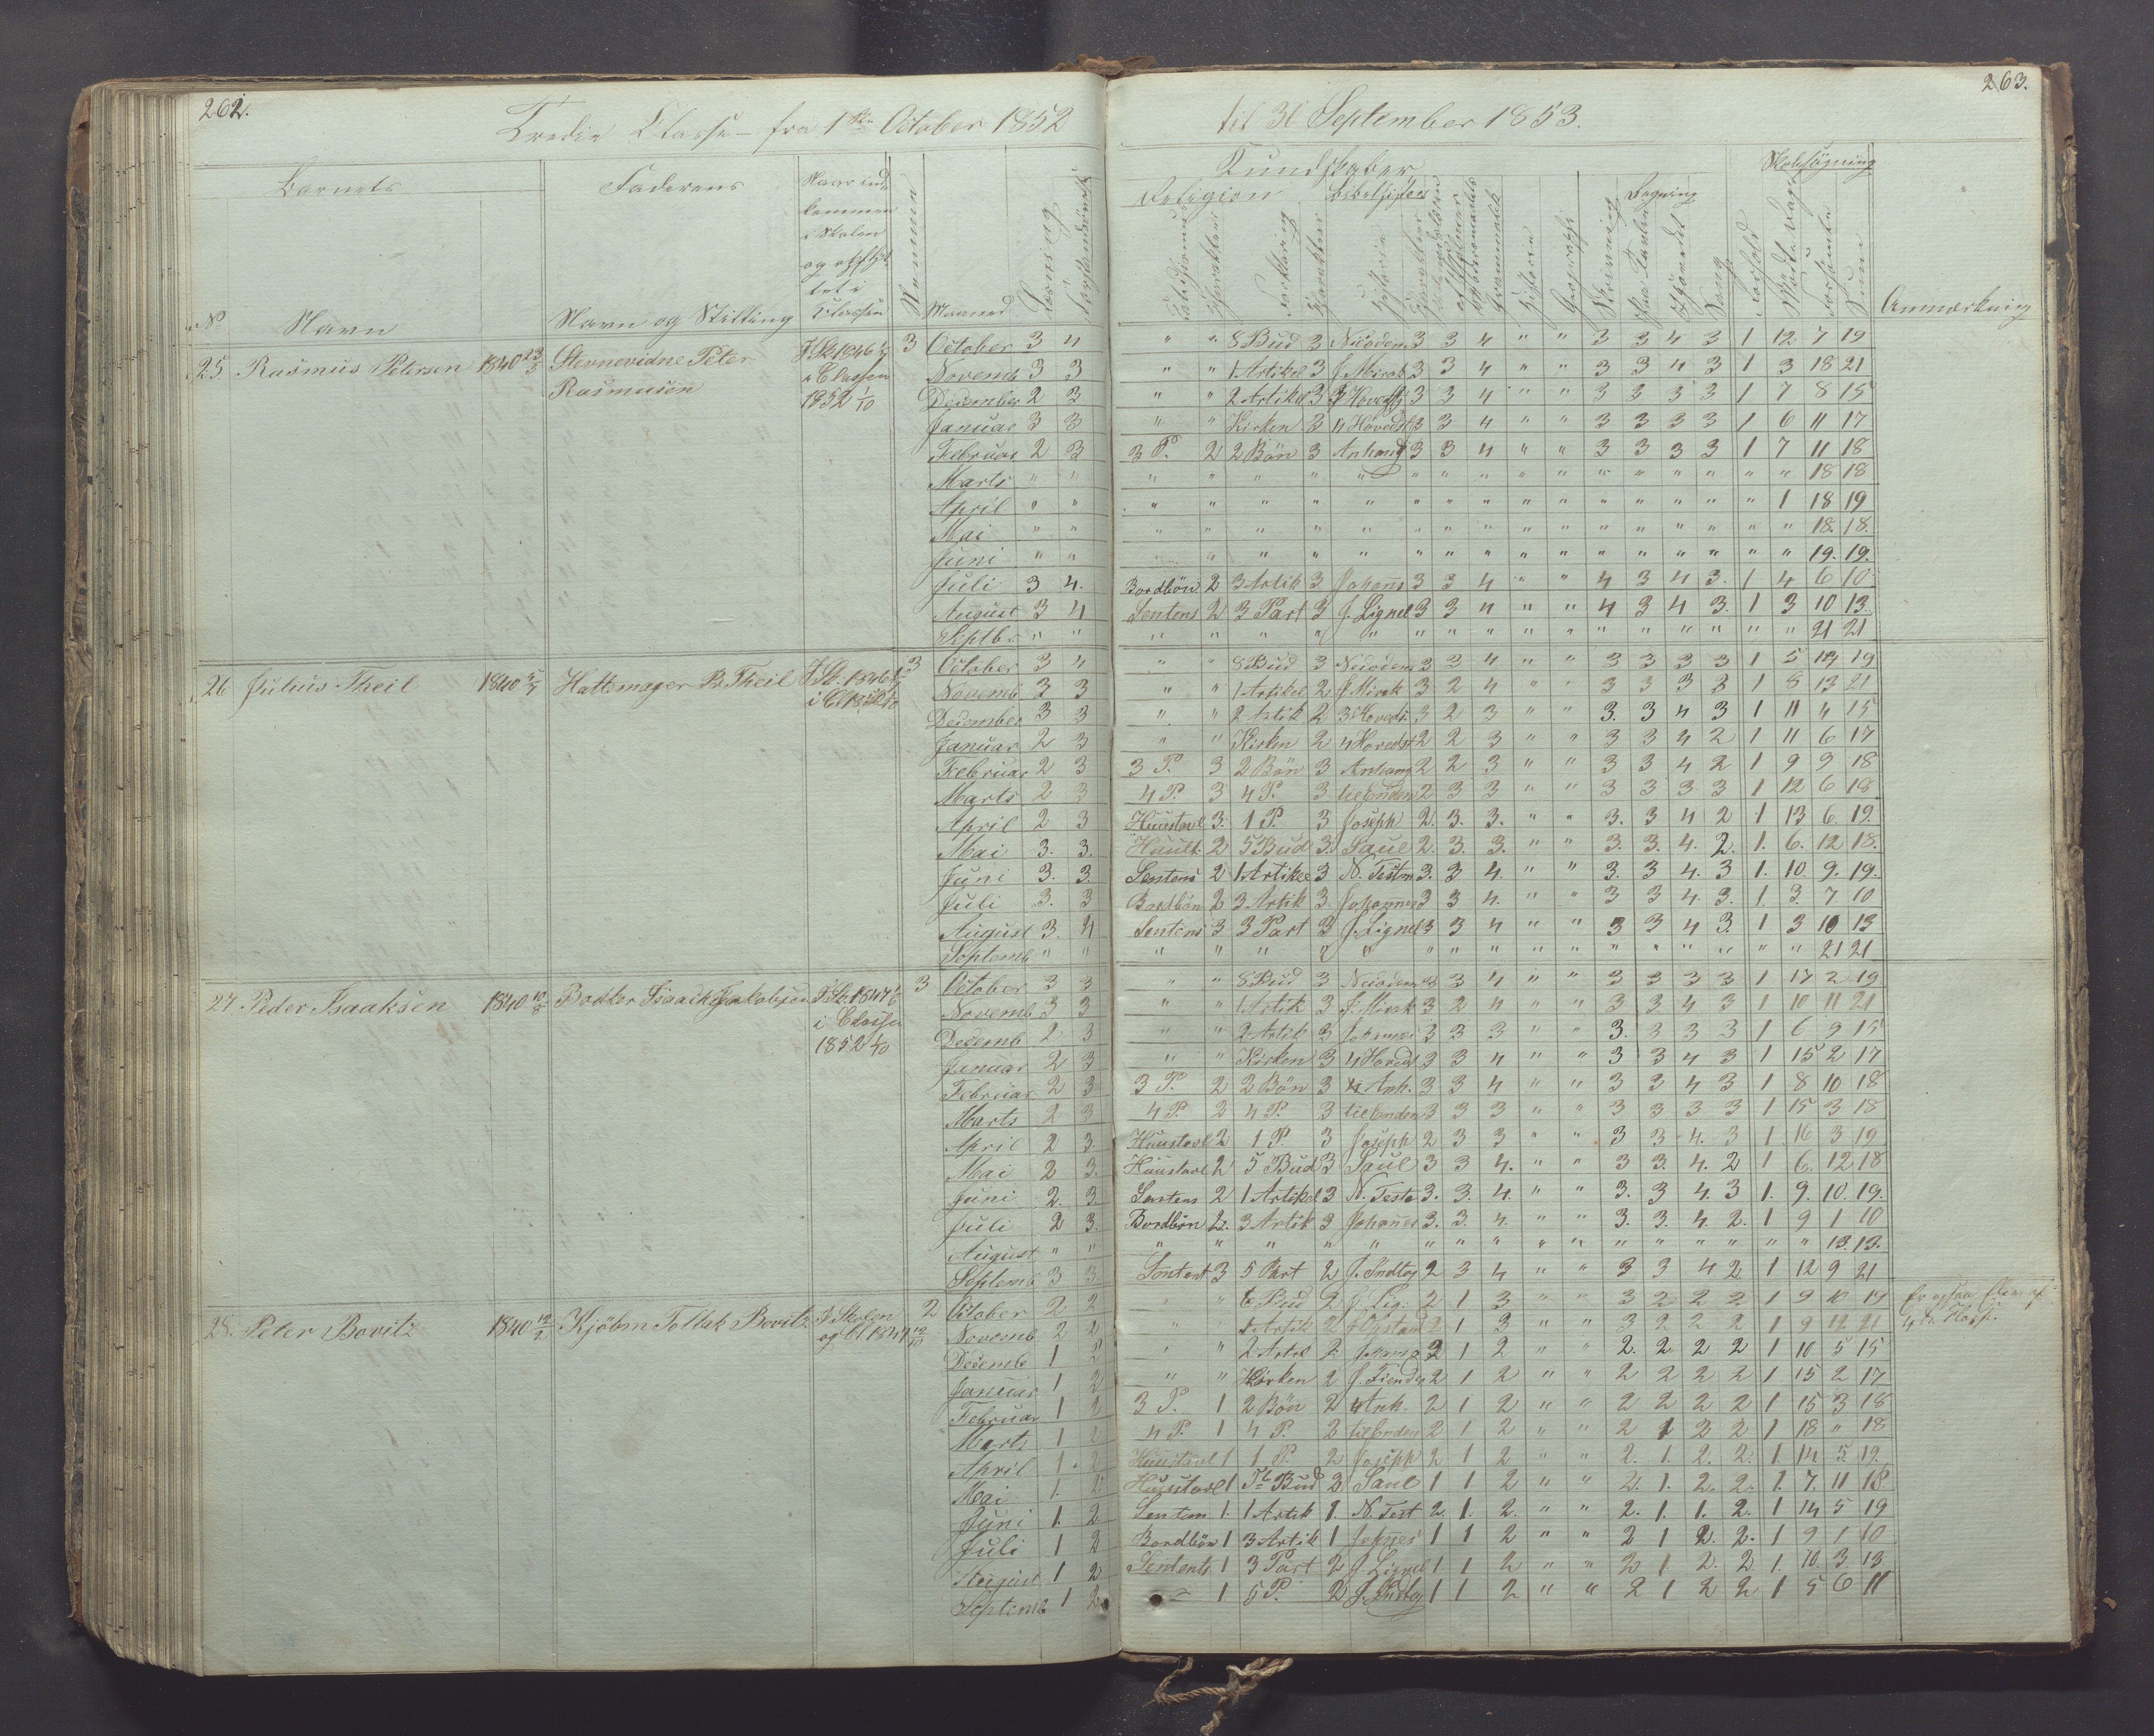 262.
263.
Tredie Classe – fra 1ste October 1852
til 30 September 1853.
Barnets
Faderens
Naar ind-
kommen
i Skolen
og opflyt-
tet i
Classen
Kundskaber
Religion
Bibelhistorie
Regning
Skolesøgning
No
Navn
Navn og Stilling
Maaned
Læsning
Forklaring
Historie
Geographi
Skrivning
Sang
Forhold
Sum
Anmærkning
25 Rasmus Petersen 1840 23/5 Stevnevidne Peter I Sk 1846 3 October 3 4 " " 8 Bud 3 Nicodem 3 3 4 " " 3 3 4 3 1 12 7 19
Rasmusen i Classen Novemb 3 3 " " 1 Artikel 3 J. Mirak 3 3 4 " " 3 3 4 3 1 3 18 21
1852 1/10 December 2 3 " " 2 Artikel 3 3 Hovedst 3 3 4 " " 3 3 3 3 1 7 8 15
Januar 3 3 " " Kirken 3 4 Hovedst 3 3 4 " " 3 3 3 3 1 6 11 17
Februar 2 3 3 P. 2 2 Bön 3 Anhang 3 3 4 " " 3 3 3 3 1 7 11 18
Marts " " " " " " " " " " " " " " " " " " 18 18
April " " " " " " " " " " " " " " " " " 1 18 19
Mai " " " " " " " " " " " " " " " " " " 18. 18.
Juni " " " " " " " " " " " " " " " " " " 19. 19.
Juli 3 4. Bordbön 2 3 Artik 3 Johans 3 3 4 " " 4 3 4 3. 1 4 6 10
August 3 4 Sentens 2 3 Part 3 J. Lignel 3 3 4 " " 4 3 4 3. 1 3 10 13.
Septbr " " " " " " " " " " " " " " " " " " 21 21
26 Julius Theil 1840 5/7 Hattemager B. Theil I Sk. 1846 3 October 3 4 " " 8 Bud 3 Nicodem 3 3 4 " " 3 3 3 3 1 5 14 19
i Cl 1852 1/10 Novemb 3 3 " " 1 Artikel 2 J Mirak 3 2 4 " " 3 3 3 3 1 8 13 21
December 3 3 " " 2 Artik 2 3 Hoveds 3 2 3 " " 3. 3 4 3 1 11 4 15
Januar 2 3 " " Kirken 2 4 Hovedst 2 2 3 " " 3 3 4 2 1 11 6 17
Februar 2 3 3 P. 3 2 Bön 3 Anhang 2 2 3 " " 3 3 4 2 1 9 9 18
Marts 2 3 4 P. 3 4 P. 3 til Enden 2 3 3 " " 3 3 3 3 1 12 6 18
April 2 3 Huustavl 3. 1 P. 3 Joseph 2. 3. 3. " " 3. 3 4 2 1 13 6. 19.
Mai 3. 3. Huust. 2 5 Bud 3. Saul 2. 3. 3. " " 3. 3. 4. 2. 1. 6. 12 18.
Juni 3. 3. Sentens 2 1 Artikel 3 N. Testm 3. 3 4. " " 3. 3 4. 3 1. 10. 9. 19.
Juli 3. 3 Bordbön 2 3 Artik 3. Johannes 3 3 4. " " 3 3 4. 3. 1. 3. 7 10
August 3. 4 Sentens 3 3 Part 3 J. Lignel 3 3 4 " " 3 3 4 3. 1 3 10 13
Septemb " " " " " " " " " " " " " " " " " " 21 21
27 Peder Isaaksen 1840 10/8 Bödker Isaach Jakobsen I Sk. 1847 3 October 3 3 " " 8 Bud 3 Nicodem 3 3 4 " " 3 3 3 3 1 17 2 19
i Classen Novemb 3 3 " " 1 Artik 3 J. Mirak 3 2 4 " " 3 3 4 3 1 10 11 21
1852 1/10 Decemb 2 3 " " 2 Artik 3 3 3 3 " " 3. 3 3 3 1 6 9 15
Januar 2 3 " " Kirken 3 4 Hovedst 3 3 4 " " 3 3 4 3 1 15 2 17
Februar 2 3 3 P. 2 2 Bön 3 4 Anh. 3 3 4 " " 3 3 4 3 1 8 10 18
Marts 2 3 4 P. 2 4 P. 3 til Enden 3 3 3 " " 3 3 3 3 1 15 3 18
April 2 3. Huustavl 2 1 P. 3 Joseph 2 3 3 " " 3 3 4. 3 1 16 3 19
Mai 2 3. Huustavl 2 5 Bud 3 Saul 3 3 4. " " 3 3. 4. 2 1 6. 12 18
Juni 2. 3 Sentens 2 1 Artikel 3 N. Testa 3. 3. 4. " " 3. 3 4. 3 1. 9. 10. 19.
Juli 2 3. Bordbön 2. 3 Artik 3 Johanes 3. 3. 4. " " 3. 3. 4. 2. 1 9 1 10
August " " " " " " " " " " " " " " " " " " 13. 13.
Septemb 3 3 Sentent 3 5 Part 2 J. Indtog 2 3 4 " " 3 3 4 2 1 12 9 21
28. Peter Bovitz 1840 12/2 Kjöbm Tollak Bovitz I Skolen 2 October 2 2 " " 6 Bud 2 J. Lig. 2 1 3 " " 3 2 2 2 1 9 10 19
og Cl 1847 Novemb 2 2 " " 1 Artik 2 2 1 3 " " 3 2 2 2 1 9 12 21 4de Classe
Decemb 1 2 " " 2 Artik 2 2 1 2 " " 2. 2 2 2 1 10 5 15
Januar 1 2 " " Kirken 2 J. Fiender 2 1 2 " " 2 2 2 2 1 15 2 17
Februar 1 2 3 P. 1 2 Bön 2 4 Anh. 2 1 2 " " 2 2 2 2 1 15 3 18
Marts 1 2 4 P. 1 4 P. 2 til Enden 2 1 2 " " 2 1 2 2 1 18 " 18
April 1. 2 Huustavl 1 1 P. 2 Joseph 2 1 2 " " 2. 1. 2. 2. 1. 14 5. 19.
Mai 1. 2. Huustavl 1 5te Bud 2 Saul 1 1 2 " " 2. 1. 2. 2. 1. 7. 11 18
Juni 1. 2 Senten 1. 1 Artik 1. N. Test 2. 1. 2. " " 2. 1. 1. 2. 1 14 5 19
Juli 1 2 Bordbön 1 3 Artik 1 Johnes 1 1 2 " " 2 1 2. 2. 1 9 1 10
August 1 2 Sentents 1 3 Part 2 J Lignel 1 1 2 " " 2 1 2 2 1. 10. 3. 13
Septemb 1 2 " 1 5 P. 2 J. Indtog 1 1 2 " " 2 1 2 2 1 5 6 11